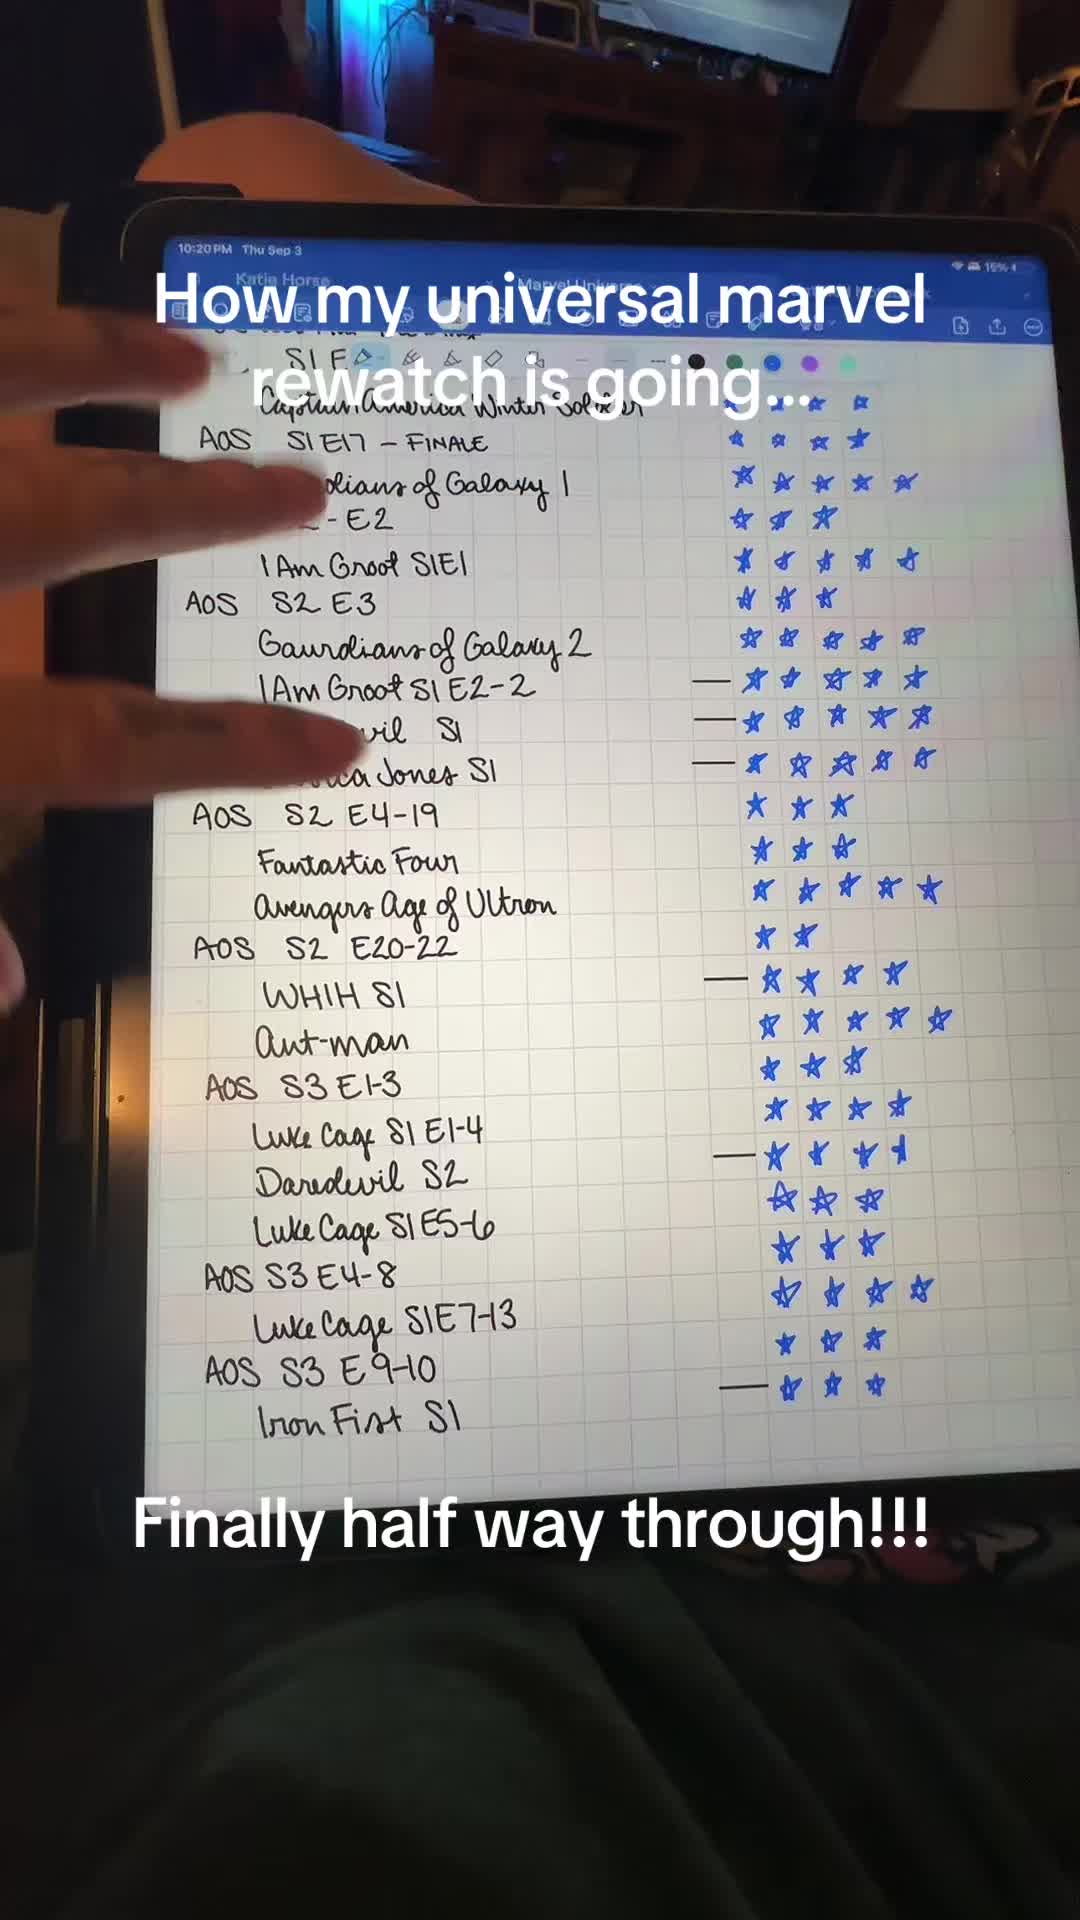 10:20 PM Thu Sep 3
15%
Katie Horse
Marvel Universe
How my universal marvel
rewatch is going...
S1 E
Captain America Winter Soldier
AOS S1 E17 - FINALE
dians of Galaxy 1
- E2
I Am Groot S1E1
AOS S2 E3
Gaurdians of Galaxy 2
I Am Groot S1 E2-2
vil S1
ica Jones S1
AOS S2 E4-19
Fantastic Four
Avengers Age of Ultron
AOS S2 E20-22
WHIH S1
Ant-man
AOS S3 E1-3
Luke Cage S1 E1-4
Daredevil S2
Luke Cage S1 E5-6
AOS S3 E4-8
Luke Cage S1E7-13
AOS S3 E9-10
Iron Fist S1
Finally half way through!!!